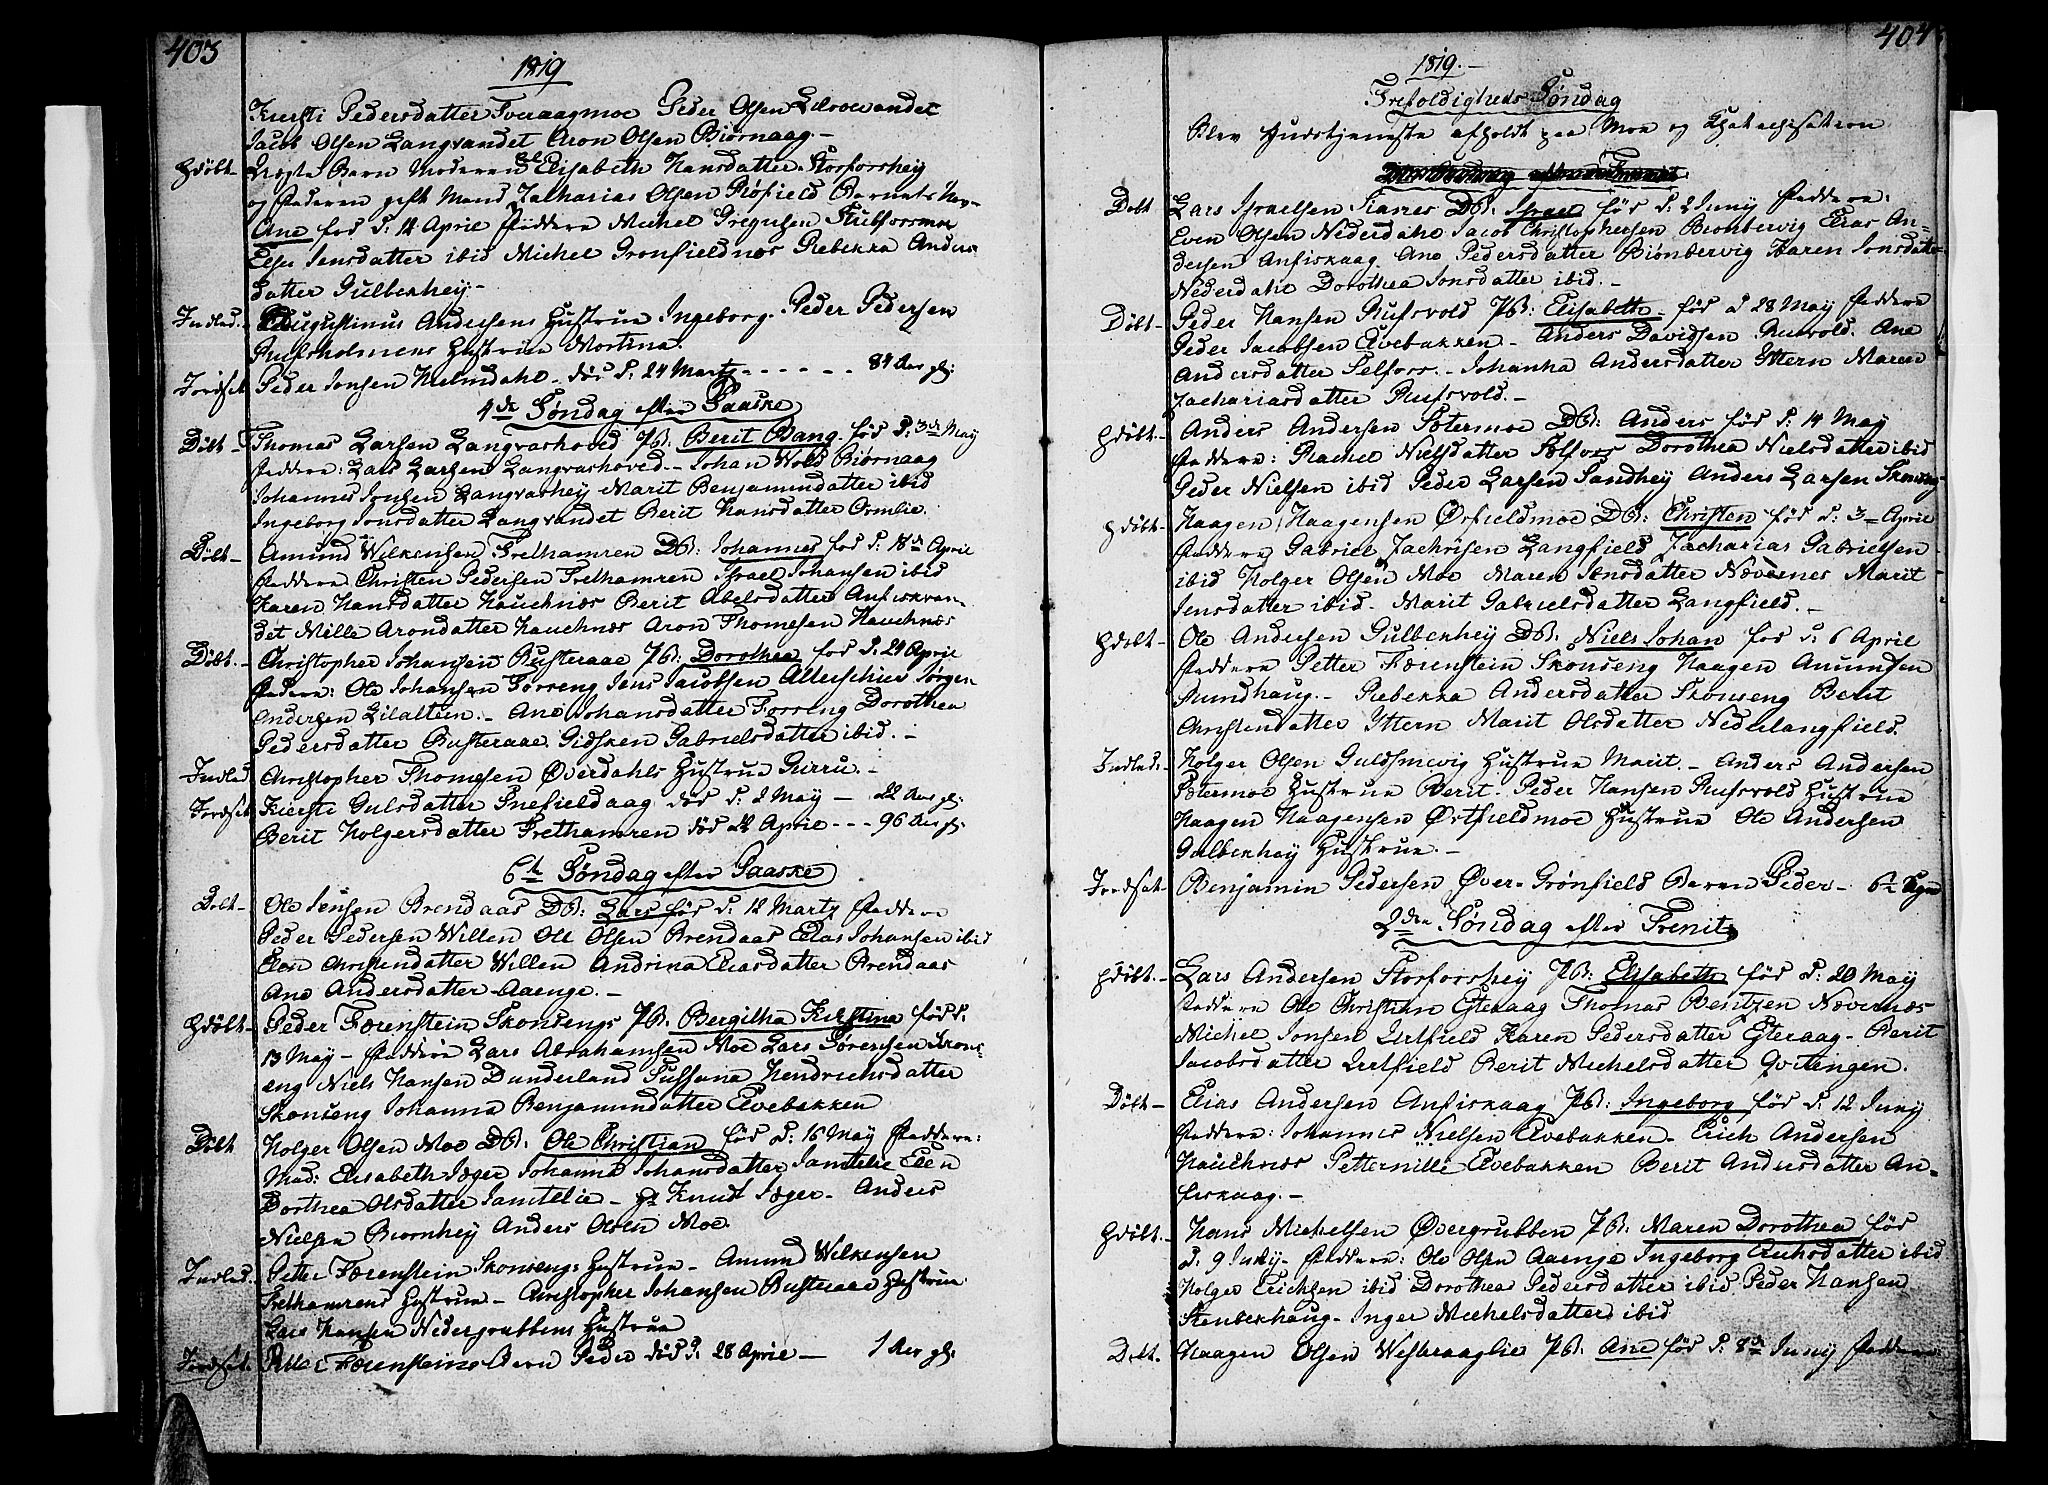 403
1819
Kiersti Pedersdatter Tveraagmoe Peder Olsen
Jacob Olsen Langvandet Aron Olsen Biørnaag –
Hdøbt – Uægte Barn Moderen Elisabeth Hansdatter Storforshey
og Faderen gift Mand Zacharias Olsen Røfield Barnets Nav
Ane fød d: 12 April Faddere Michel Gregusen Stubforsmoe
Jensdatter ibid Michel Grønfieldnæs Rebekka Anders
datter Gulbekhey –
Indled. Augustinus Andersens Hustrue Ingeborg. Peder Pedersen
Rufsholmens Hustrue Martina.
Jordfæst Peder Jonsen Hielmdahl – død d: 24 Martz – – – – – 84 Aar gl:
4de Søndag efter Paaske
Døbt – Thomas Larsen Langvashoved PB: Berit Bang fød d: 3de May
Faddere: Lars Larsen Langvashoved – Johan Wold Biørnaag
Johannes Jonsen Langvashey Marit Benjamindatter ibid
Ingeborg Jonsdatter Langvandet Berit Hansdatter Ormlie.
Døbt – Amund Wilkensen Frethamren DB: Johannes fød d: 18de April
Faddere Christen Pedersen Frethamren Israel Johansen ibid
Karen Hansdatter Hauchnæs Berit Abelsdatter Anfiskvan-
det Mille Arondatter Hauchnæs Aron Thomesen Hauchnæs
Døbt. – Christopher Johansen Busteraae PB: Dorothea fød d. 21 April
Faddere: Ole Johansen Forreng Jens Jacobsen Alterschier Jørgen
Andersen Lilaltien. – Ane Johansdatter Forreng Dorothea
Pedersdatter Busteraae. Gidsken Gabrielsdatter ibid. –
Indled. Christopher Thomesen Øverdahls Hustrue Gurru. –
Jordfæst Kiersti Gulsdatter Snefieldaag død d: 2 May – 22 Aar gl:
Berit Holgersdatter Frethamren død 22 April – – – 96 Aar gl:
6te Søndag efter Paaske
Døbt – Ole Jensen Brendaas DB: Lars fød d: 12 Martz Faddere
Peder Pedersen Willen Ole Olsen Brendaas Elias Johansen ibid
Elen Christendatter Willen Andrina Eliasdatter Brendaas
Ane Andersdatter Aaenge. –
Hdøbt – Peder Færenstein Skonsengs PB. Bergitha Kirstina fød d.
13 May – Faddere Lars Abrahamsen Moe Lars Sørensen Skons-
eng Niels Hansen Dunderland Sussana Hendrichsdatter
Skonseng Johanna Benjamindatter Elvebakken
Døbt Holger Olsen Moe DB: Ole Christian fød d: 16 May Faddere:
Mad: Elisabeth Jæger Johanna Johansdatter Jamtelie Elen
Dorthea Olsdatter Jamtelie – Hr Knud Jæger – Anders
Nielsen Biørnhey Anders Olsen Moe.
Indled. Petter Færenstein Skonsengs Hustrue – Amund Wilkensen
Frethamrens Hustrue – Christopher Johansen Busteraae Hustrue
Lars Hansen Nedergrubbens Hustrue
Jordfæst Petter Færensteins Barn Peder død d. 28 April – 1 Aar gl:
404
1819. –
Trefoldigheds Søndag
Blev Gudstjeneste afholdt paa Moe og Chatechisation
Døbt Lars Israelsen DB: Israel fød d: 2 Juny Faddere:
Even Olsen Nederdahl Jacob Christophersen Biønbervig Elias An-
dersen Anfiskaag Ane Pedersdatter Biønbervig Karen Jonsdatter
Nederdahl Dorothea Jonsdatter ibid. –
Døbt – Peder Hansen Rufsvold PB: Elisabeth – fød d 28 May Faddere
Peder Jacobsen Elvebakken – Anders Davidsen Rusvold. Ane
Andersdatter Selfors. – Johanna Andersdatter Yttern Maren
Zachariasdatter Rufsvold. –
Hdøbt. – Anders Andersen Sætermoe DB: Anders fød d: 14 May
Faddere: Rachel Nielsdatter Selfors Dorothea Nielsdatter ibid
Peder Nielsen ibid Peder Larsen Sandhey Anders Larsen Skonseng
Hdøbt – Haagen Haagensen Ørtfieldmoe DB: Christen fød d: 3 – April
Faddere Gabriel Zachrisen Langfield Zacharias Gabrielsen
ibid Holger Olsen Moe Maren Jensdatter Nævernes Marit
Jensdatter ibid – Marit Gabrielsdatter Langfield. –
Hdøbt – Ole Andersen Gulbekhey DB: Niels Johan fød d: 6 April
Faddere Petter Færenstein Skonseng Haagen Amundsen
Rundhaug. – Rebekka Andersdatter Skonseng Berit
Christendatter Yttern Marit Olsdatter Nederlangfield.
Indled. – Holger Olsen Guldsmevig Hustrue Marit. – Anders Andersen
Sætermoe Hustrue Berit – Peder Hansen Rufsvold Hustrue
Haagen Haagensen Ørtfieldmoe Hustrue Ole Andersen
Gulbekhey Hustrue. –
Jordfæst – Benjamin Pedersen Øver-Grønfield Barn Peder – 6
2den Søndag efter Trenit
Hdøbt – Lars Andersen Storforshey PB: Elisabeth fød d: 20 May
Faddere Ole Christian Ytteraag Thomas Bentzen Nævernæs
Michel Jonsen Urtfield Karen Pedersdatter Ytteraag – Berit
Jacobsdatter Urtfield Berit Michelsdatter Qvitingen.
Døbt – Elias Andersen Anfiskaag PB: Ingeborg fød d: 12 Juny
Faddere: Johannes Nielsen Elvebakken – Erich Andersen
Hauchnæs Petternille Elvebakken Berit Andersdatter An-
fiskaag. –
Hdøbt – Hans Michelsen Øvergrubben PB: Maren Dorothea fød
d. 9 Juny – Faddere: Ole Olsen Aaenge Ingeborg Erichsdatter ibid
Holger Erichsen ibid Dorothea Pedersdatter ibid Peder Hansen
Stenbekhaug – Inger Michelsdatter ibid
Døbt. Haagen Olsen Westeraaglie PB: Ane fød d: 8de Juny Faddere